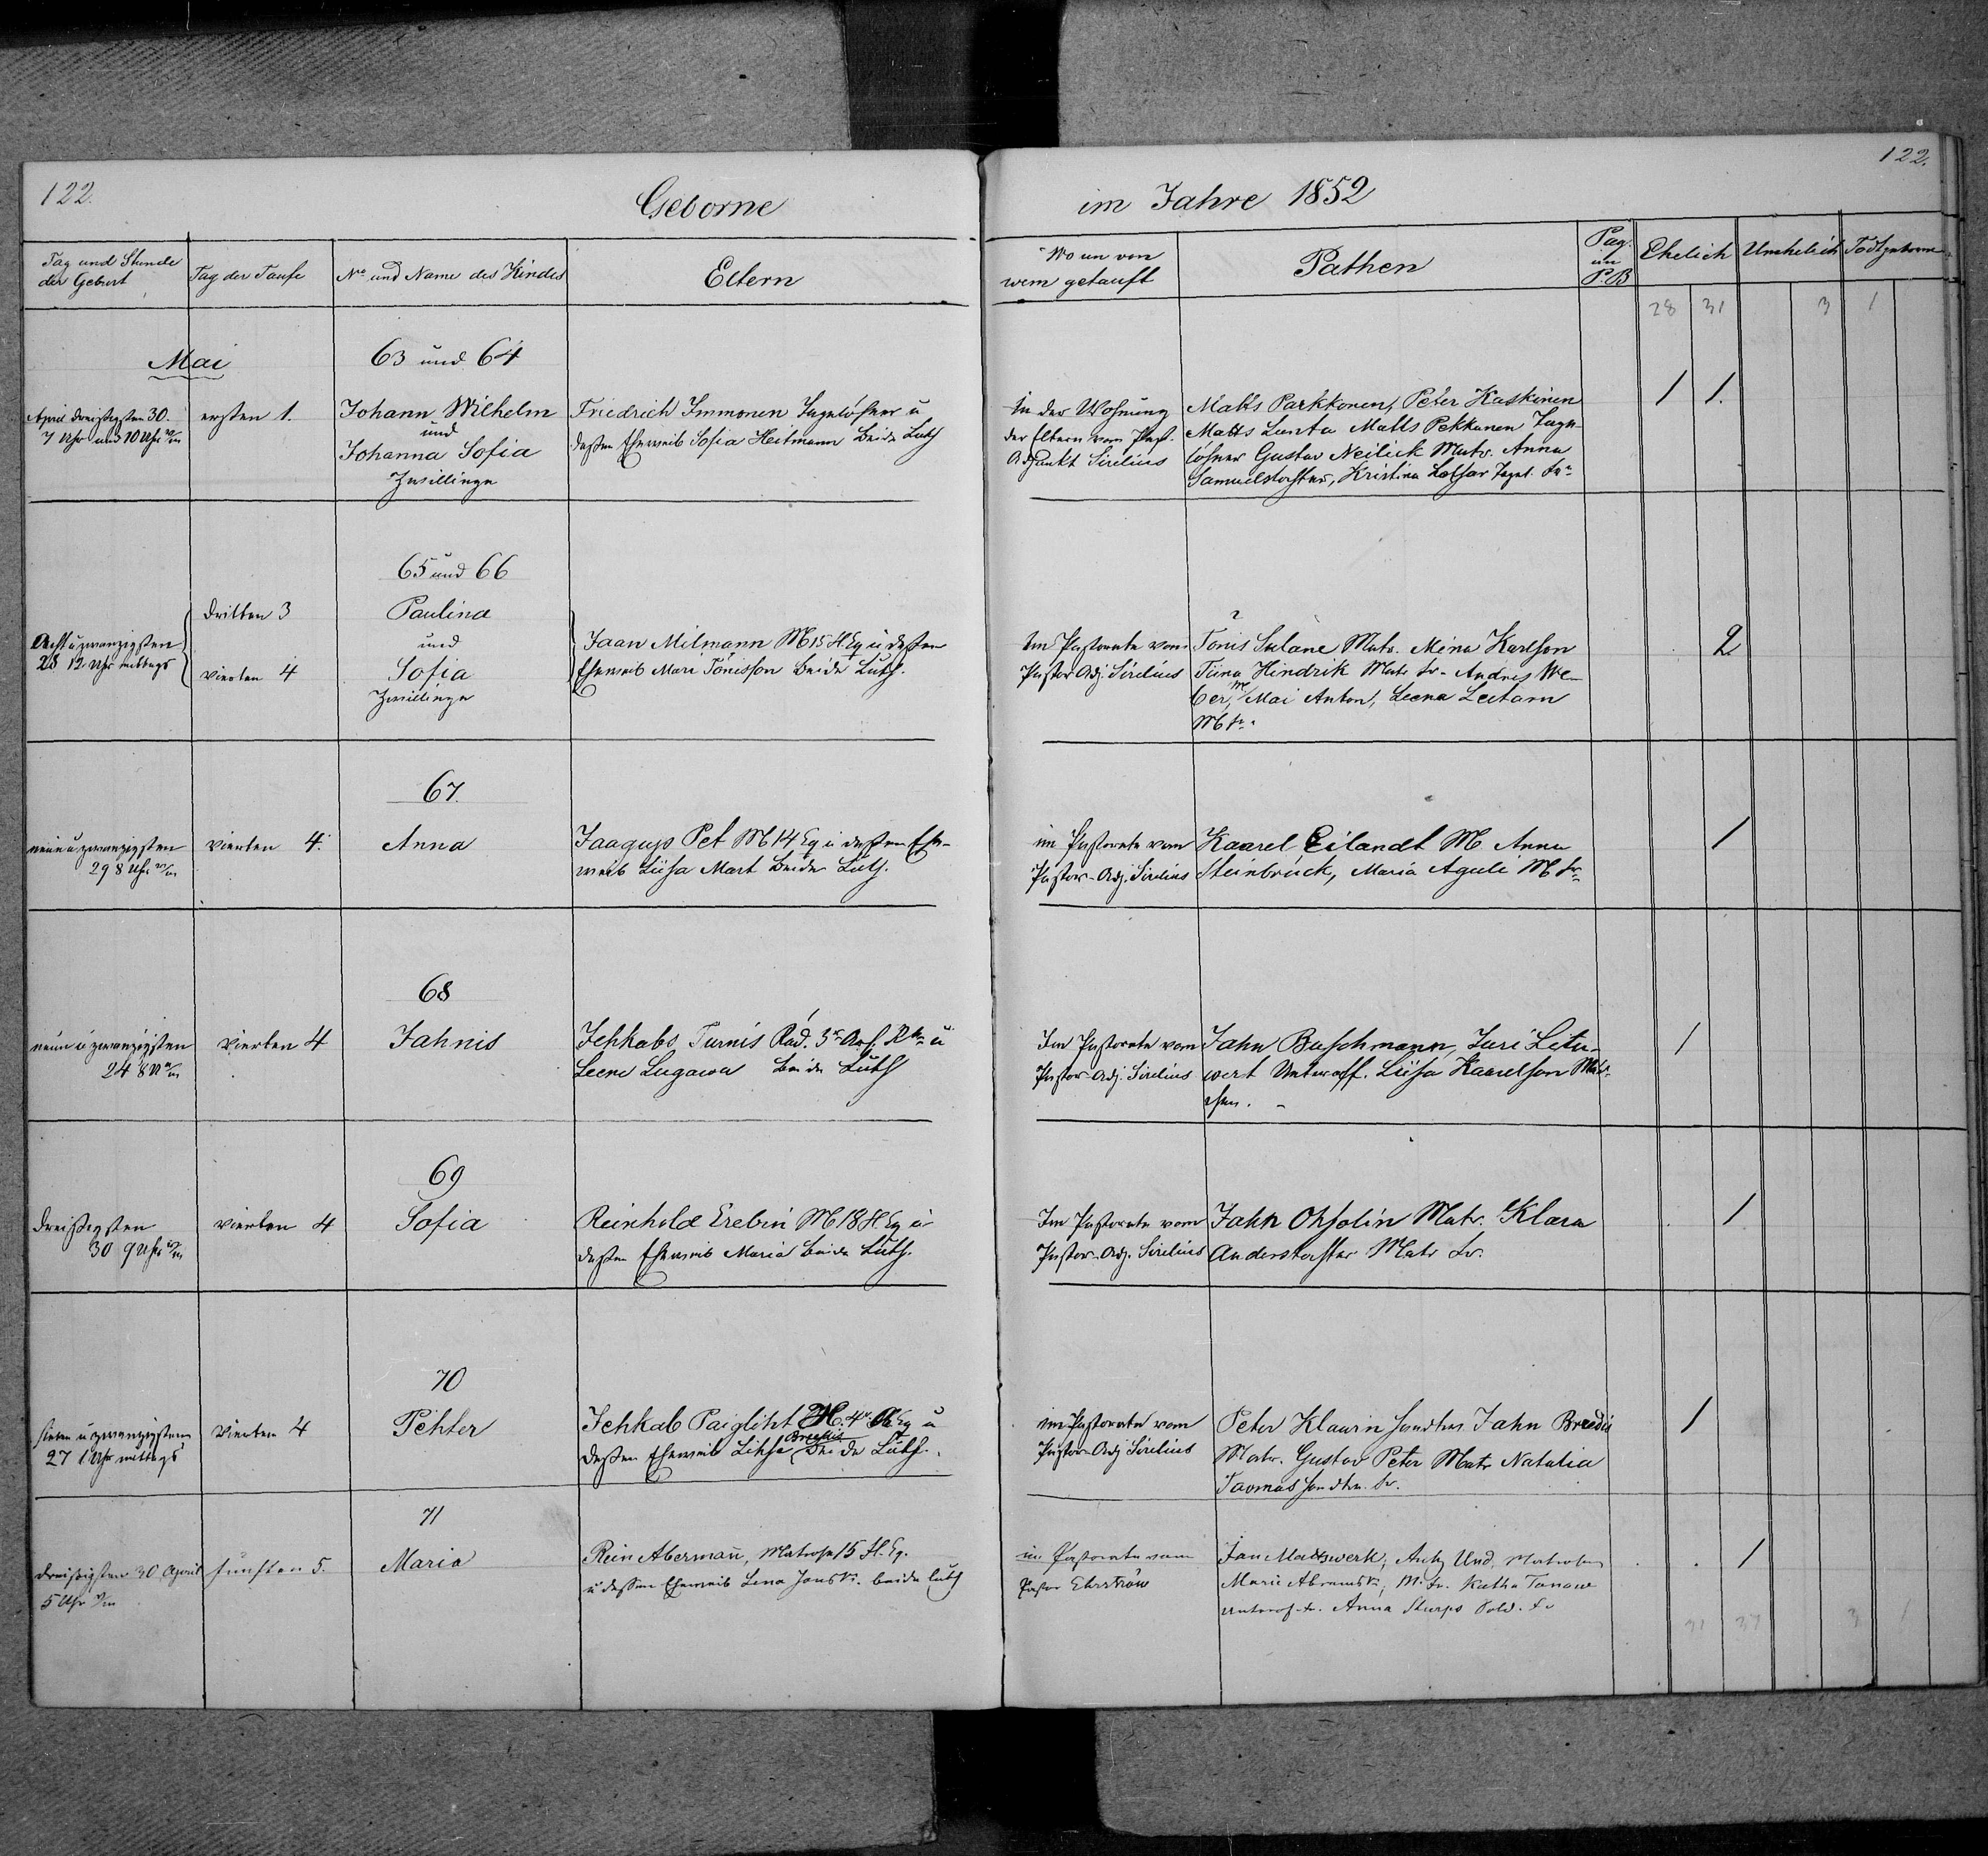 122.
Geborne
im Jahre 1852
122.
Tag und Stunde
der Geburt
Tag der Taufe
No und Name des Kindes
Eltern
Wo un von
wem getauft
Pathen
Pag.
im
P.B
Ehelich
Unehelich
Todtgeborne
28 31 3 1
Mai
63 und 64
April dreißigsten 30.
7 Uhr und 10 Uhr
ersten 1.
Johann Wilhelm
und
Johanna Sofia
Zwillinge
Friedrich Immonen Tagelöhner u
dessen Eheweib Sofia Heitmann beide Luth
in der Wohnung
der Eltern vom Past.
Adjunkt Sirelius
Matts Parkkonen, Peter Kaskinen
Matts Lunta Matts Pekkanen Tage-
löhner Gustav Neilick Matr. Anna
Samuelstochter, Kristina Lothar
1 1.
65 und 66
Acht u zwanzigsten
28 12 Uhr mittags
dritten 3
vierten 4
Paulina
und
Sofia
Zwillinge
Jaan Milmann M 15 Fl. Eq u dessen
Eheweib Mari Tönisson beide Luth.
Im Pastorate vom
Pastor Adj. Sirelius
Tönis Sulane Matr. Mina Karlson
Tiina Hindrik Matr fr. Andres We-
ber, M Mai Anton, Leena Leetam
M fr.
2
67.
neun u zwanzigsten
29 8 Uhr
vierten 4.
Anna
Jaagup Pet M 14 Eq u dessen Ehe-
weib Liisa Mart beide Luth.
im Pastorate vom
Pastor-Adj. Sirelius
Kaarel Eilandt M Anna
Steinbrück, Maria Aguli M fr.
1
68
neun u zwanzigsten
24 8 U
vierten 4
Jahnis
Jehkabs Turnis
Leene Lugawa beide Luth
Im Pastorate vom
Pastor-Adj. Sirelius
Jahn Buschmann, Juri Litu-
wert Unteroff. Liisa Kaarelson
1
69
dreißigsten
30 9 Uhr
vierten 4
Sofia
Reinhold Erebin M 18 Fl. Eq u
dessen Eheweib Maria beide Luth.
Im Pastorate vom
Pastor-Adj. Sirelius
Jahn Ohsolin Matr. Klara
Anderstochter Matr fr.
1
70
sieben u zwanzigsten
27 1 Uhr mittags
vierten 4
Pehter
Jehkab Paigliht
Breedis
dessen Eheweib Lihse, beide Luth.
im Pastorate vom
Pastor-Adj Sirelius
Peter Klawin Jahn Breedis
Matr. Gustav Peter Matr Natalia
Taomas
1
71
dreißigsten 30 April
5 Uhr
fünften 5.
Maria
Rein Abermañ, Matrose 15 Fl. Eq.
u dessen Eheweib Lena beide luth
im Pastorate vom
Pastor Ehrström
Jan Mattswerk, Und, Matrosen
Marie M. fr. Katha Tanowe
Anna Sturps Sold. fr
1
31 37 3 1